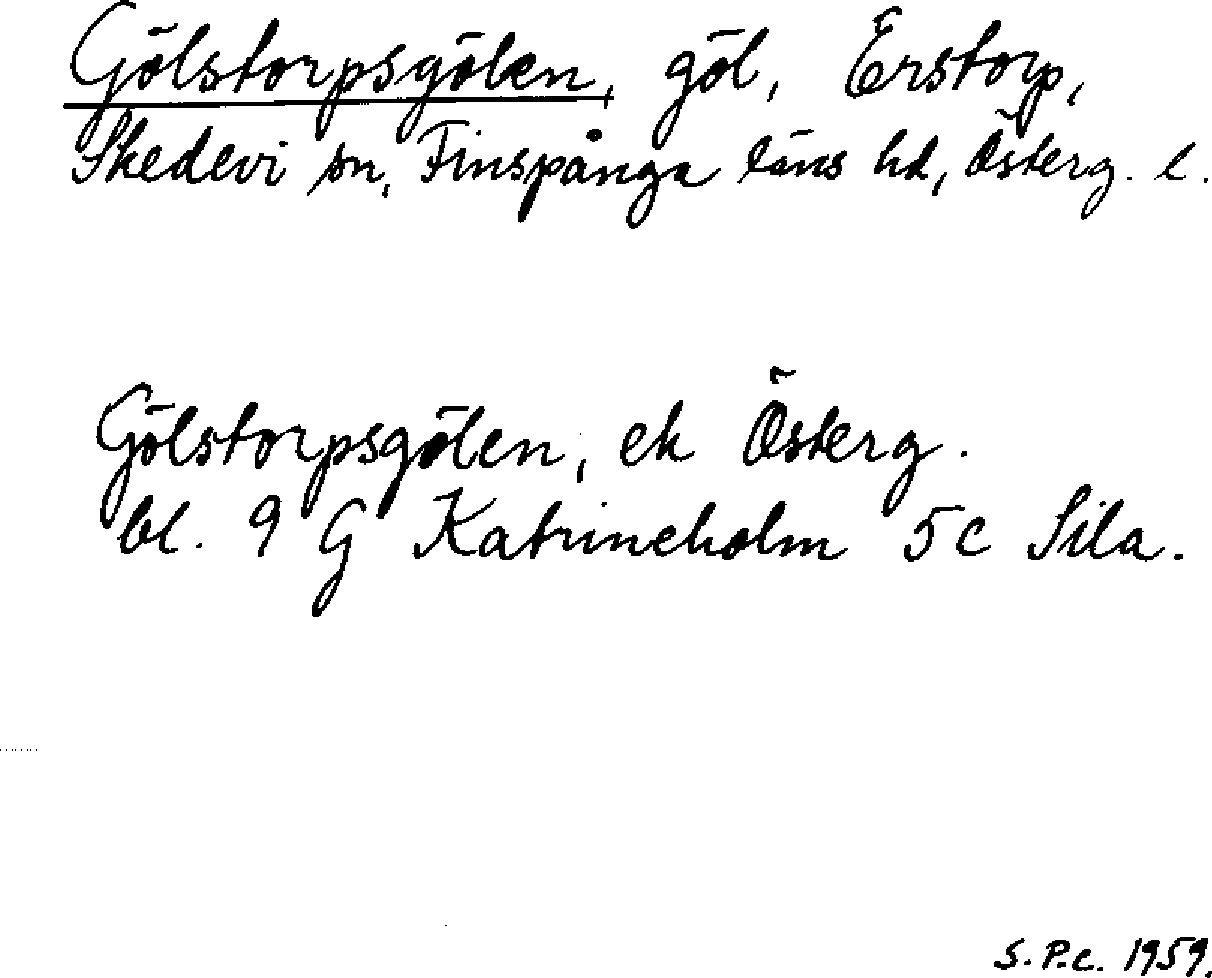 Gölstorpsgölen, göl, Erstorp,
Skedevi sn, Finspånga läns hd, Österg. l.
Gölstorpsgölen, ek Österg.
bl. 9 G Katrineholm 5c Sila.
S.P.c. 1959.